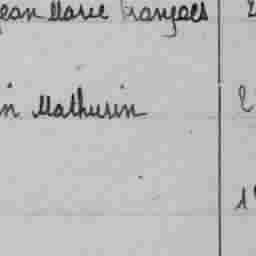 Jean Marie François
in Mathurin